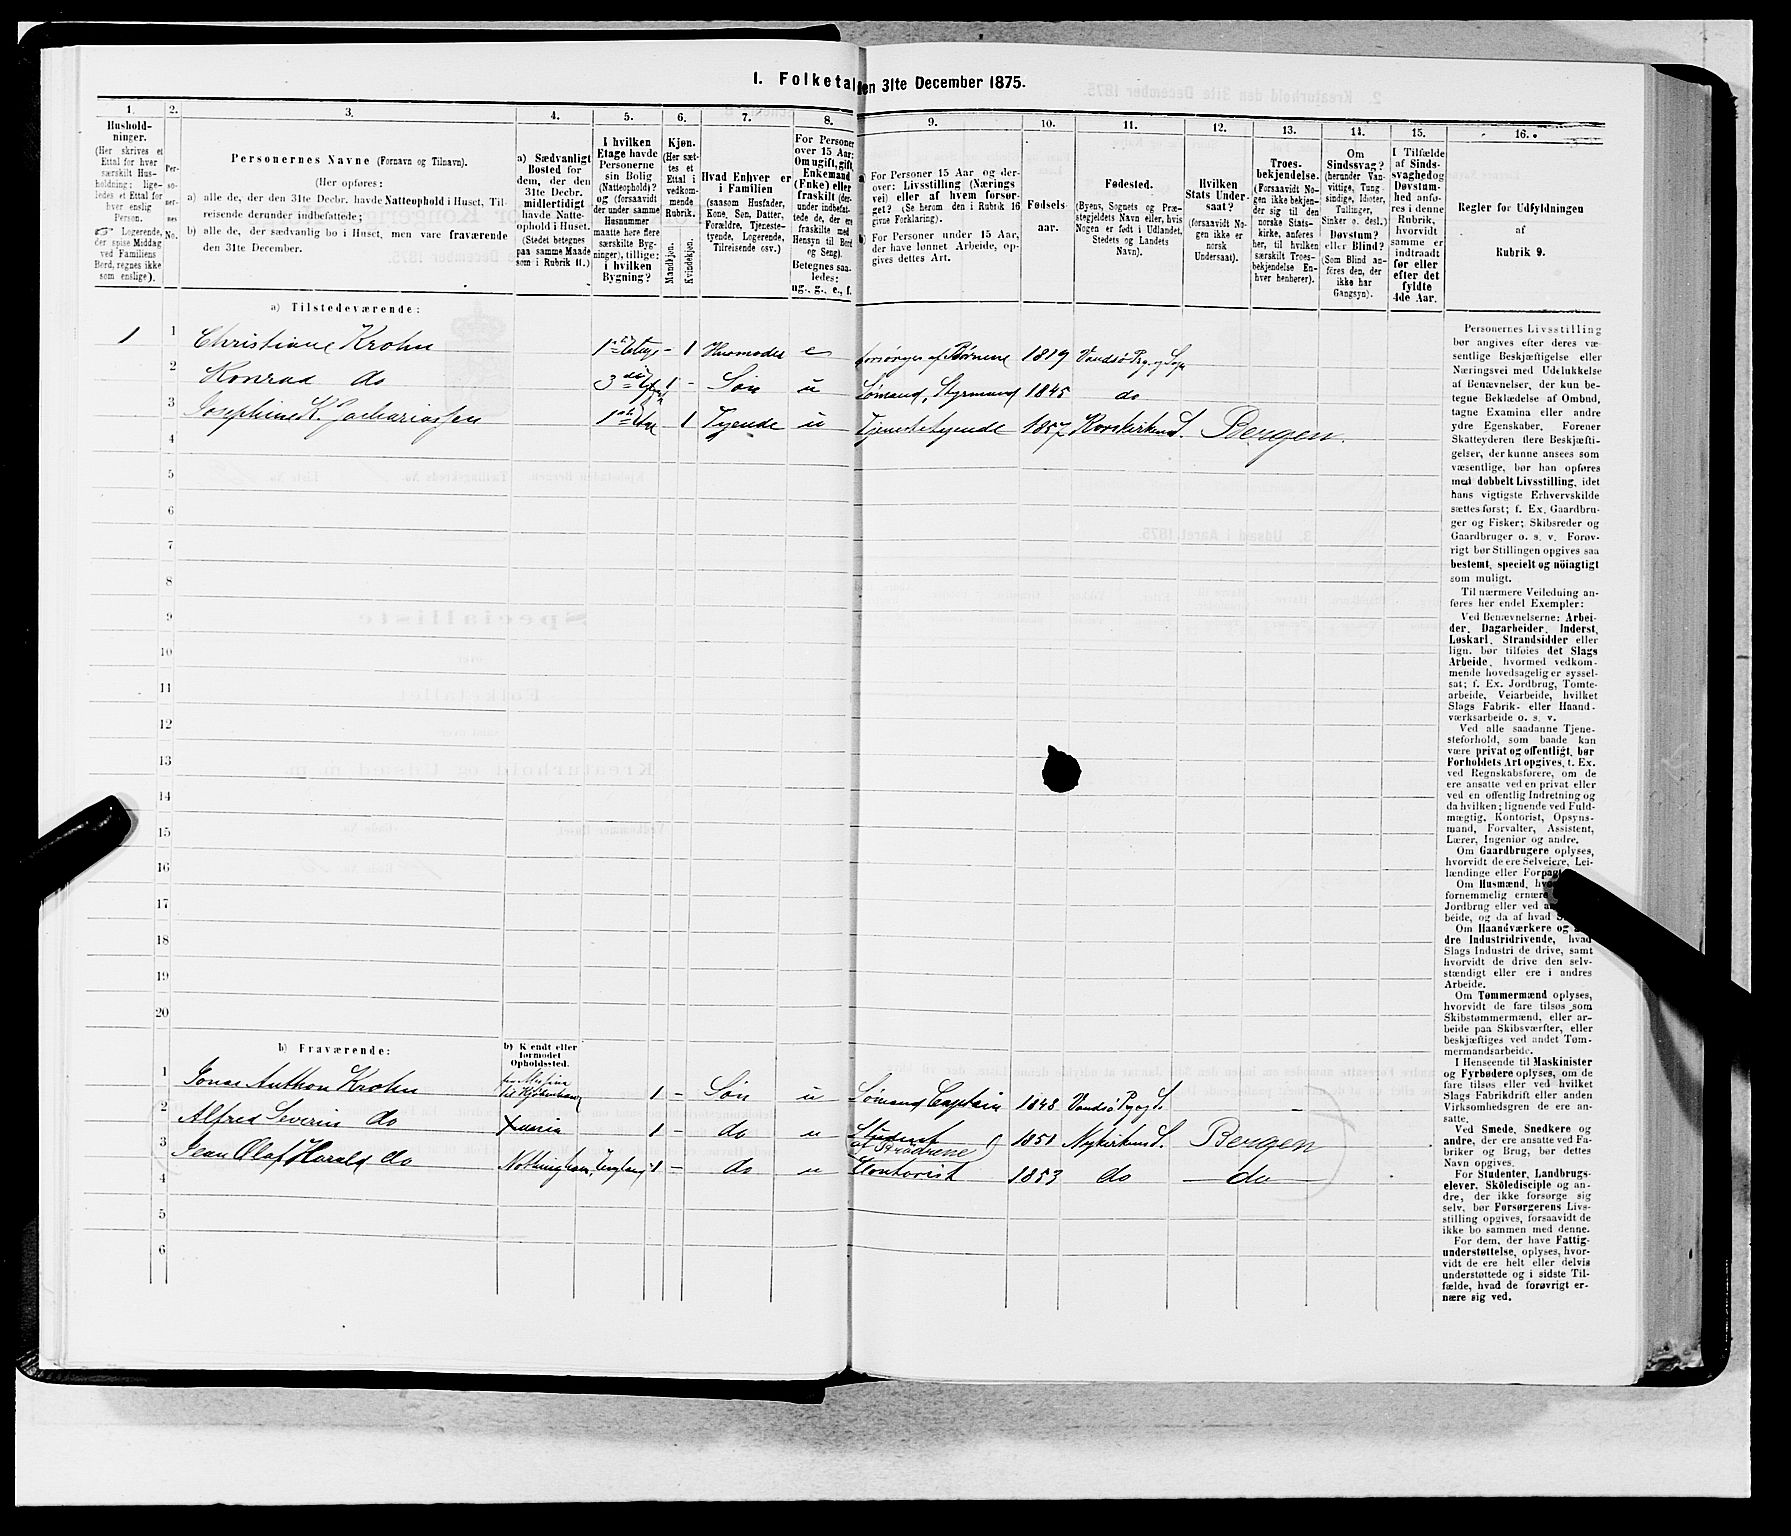 1. Folketal den 31te December 1875.
1. 2. 3. 4. 5. 6. 7. 8. 9. 10. 11. 12. 13. 14. 15. 16.
Hushold-
ninger.
(Her skrives et
Ettal for hver
særskilt Hus-
holdning; lige-
ledes et Ettal for
hver enslig
Person.
☞ Logerende,
der spise Middag
ved Familiens
Bord, regnes ikke
som enslige).
Per-
so-
ner-
nes
No.
Personernes Navne (Fornavn og Tilnavn).
(Her opføres:
a) alle de, der den 31te Decbr. havde Natteophold i Huset, Til-
reisende derunder indbefattede;
b) alle de, der sædvanlig bo i Huset, men vare fraværende
den 31te December.
a) Sædvanligt
Bosted for
dem, der den
31te Decbr.
midlertidigt
havde Natte-
ophold i Huset.
(Stedet betegnes
paa samme Maade
som i Rubrik 11.)
I hvilken
Etage havde
Personerne
sin Bolig
(Natteophold)?
og (forsaavidt
der under samme
Husnummer
maatte høre flere
særskilte Byg-
ninger), tillige:
i hvilken
Bygning?
Kjøn.
(Her sæt-
tes et
Ettal i
vedkom-
mende
Rubrik.
Mandkjøn.
Kvindekjøn.
Hvad Enhver er
i Familien
(saasom Husfader,
Kone, Søn, Datter,
Forældre, Tjeneste-
tyende, Logerende,
Tilreisende osv.)
For Personer
over 15 Aar:
Om ugift, gift
Enkemand
(Enke) eller
fraskilt (der-
under indbefat-
tede de, der ere
fraskilte med
Hensyn til Bord
og Seng).
Betegnes saa-
ledes:
ug., g., e., f.
a) For Personer 15 Aar og der-
over: Livsstilling (Nærings
vei) eller af hvem forsør-
get? (Se herom den i Rubrik 16
givne Forklaring).
b) For Personer under 15 Aar,
der have lønnet Arbeide, op-
gives dettes Art.
Fødsels-
aar.
Fødested.
(Byens, Sognets og Præ-
stegjeldets Navn eller, hvis
Nogen er født i Udlandet,
Stedets og Landets
Navn).
Hvilken
Stats Under-
saat?
(forsaavidt No-
gen ikke er
norsk
Undersaat).
Troes-
bekjendelse.
(Forsaavidt No-
gen ikke bekjen-
der sig til den
norske Stats-
kirke, anføres
her, til hvilken
særskilt Troes-
bekjendelse En-
hver henhører).
Om
Sindssvag?
(herunder Van-
vittige, Tung-
sindige, Idioter,
Tullinger,
Sinker o. desl.)
Døvstum?
eller Blind?
(Som Blind an-
føres den, der
ikke har
Gangsyn).
I Tilfælde
af Sinds-
svaghed og
Døvstum-
hed anfø-
res i denne
Rubrik,
hvorvidt
samme er
indtraadt
før eller
efter det
fyldte
4de Aar.
Regler for Udfyldningen
af
Rubrik 9.
a) Tilstedeværende:
1 1 Christiane Krohn 1ste Etage - 1 Husmoder e forsørges af Børnene 1819 Vandsø Pr. og Sogn
2 Konrad do 3die Etage 1 - Søn u Sømand, Styrmand 1845 do
3 Josephine K. Zachariassen 1ste Etage - 1 Tyende u Tjenestetyende 1857 Korskirken S. Bergen.
4
5
6
7
8
9
10
11
12
13
14
15
16
17
18
19
20
b) Fraværende:
b) Kjendt eller
formodet
Opholdssted.
1 Jonas Anthon Krohn fra Messina til Kjøbenhavn 1 - Søn u Sømand Captain 1848 Vandsø Pr. og S.
2 Alfred Severin do 1 - do u Student af Brødrene 1851 Nykirken S. Bergen
3 Jean Olaf Harald do Nottingham, England 1 - do u Contorist 1853 do do
4
5
6
Personernes Livsstilling
bør angives efter deres væ-
sentlige Beskjæftigelse eller
Næringsvei med Udelukkelse
af Benævnelser, der kun be-
tegne Beklædelse af Ombud,
tagne Examina eller andre
ydre Egenskaber. Forener
Skatteyderen flere Beskjæfti-
gelser, der kunne ansees som
væsentlige, bør han opføres
med dobbelt Livsstilling, idet
hans vigtigste Erhvervskilde
sættes først; f. Ex. Gaardbru-
ger og Fisker; Skibsreder og
Gaardbruger o. s. v. Forøv-
rigt bør Stillingen opgives saa
bestemt, specielt og nöiagtigt
som muligt.
Til nærmere Veiledning an-
føres her endel Exempler:
Ved Benævnelserne: Arbei-
der, Dagarbeider, Inderst,
Løskarl, Strandsidder eller
lign. bør tilføies det Slags
Arbeide, hvormed vedkom-
mende hovedsagelig er syssel-
sat; f. Ex. Jordbrug, Tomte-
arbeide, Veiarbeide, hvilket
Slags Fabrik- eller Haand-
værksarbeide o. s. v.
Ved alle saadanne Tjene-
steforhold, som baade kan
være privat og offentligt, bør
Forholdets Art opgives, f. Ex.
ved Regnskabsførere, om de
ere ansatte ved en privat eller
ved en offentlig Indretning og
da hvilken; lignende ved Fuld-
mægtig, Kontorist, Opsyns-
mand, Forvalter, Assistent,
Lærer, Ingeniør og andre.
Om Gaardbrugere oplyses,
hvorvidt de ere Selveiere, Lei-
lændinge eller
Om Husmænd,
fornemmelig
Jordbrug eller ved
beide, og da af hvad
Om Haandværkere og
dre Industridrivende, hvad
Slags Industri de drive, samt
hvorvidt de drive den selv-
stændigt eller ere i andres
Arbeide.
Om Tømmermænd oplyses,
hvorvidt de fare tilsøs som
Skibstømmermænd, eller ar-
beide paa Skibsværfter, eller
beskjæftiges ved andet Tøm-
mermandsarbeide.
I Henseende til Maskinister
og Fyrbødere oplyses, om de
fare tilsøs eller ved hvilket
Slags Fabrikdrift eller anden
Virksomhedsgren de ere an-
satte.
Ved Smede, Snedkere og
andre, der ere ansatte ved Fa-
briker og Brug, bør dettes
Navn opgives.
For Studenter, Landbrugs-
elever, Skoledisciple og an-
dre, der ikke forsørge sig
selv, bør Forsørgerens Livs-
stilling opgives, forsaavidt de
ikke bo sammen med denne.
For dem, der have Fattig-
understøttelse, oplyses, hvor-
vidt de ere helt eller delvis
understøttede og i sidste Til-
fælde, hvad de forøvrigt er-
nære sig ved.